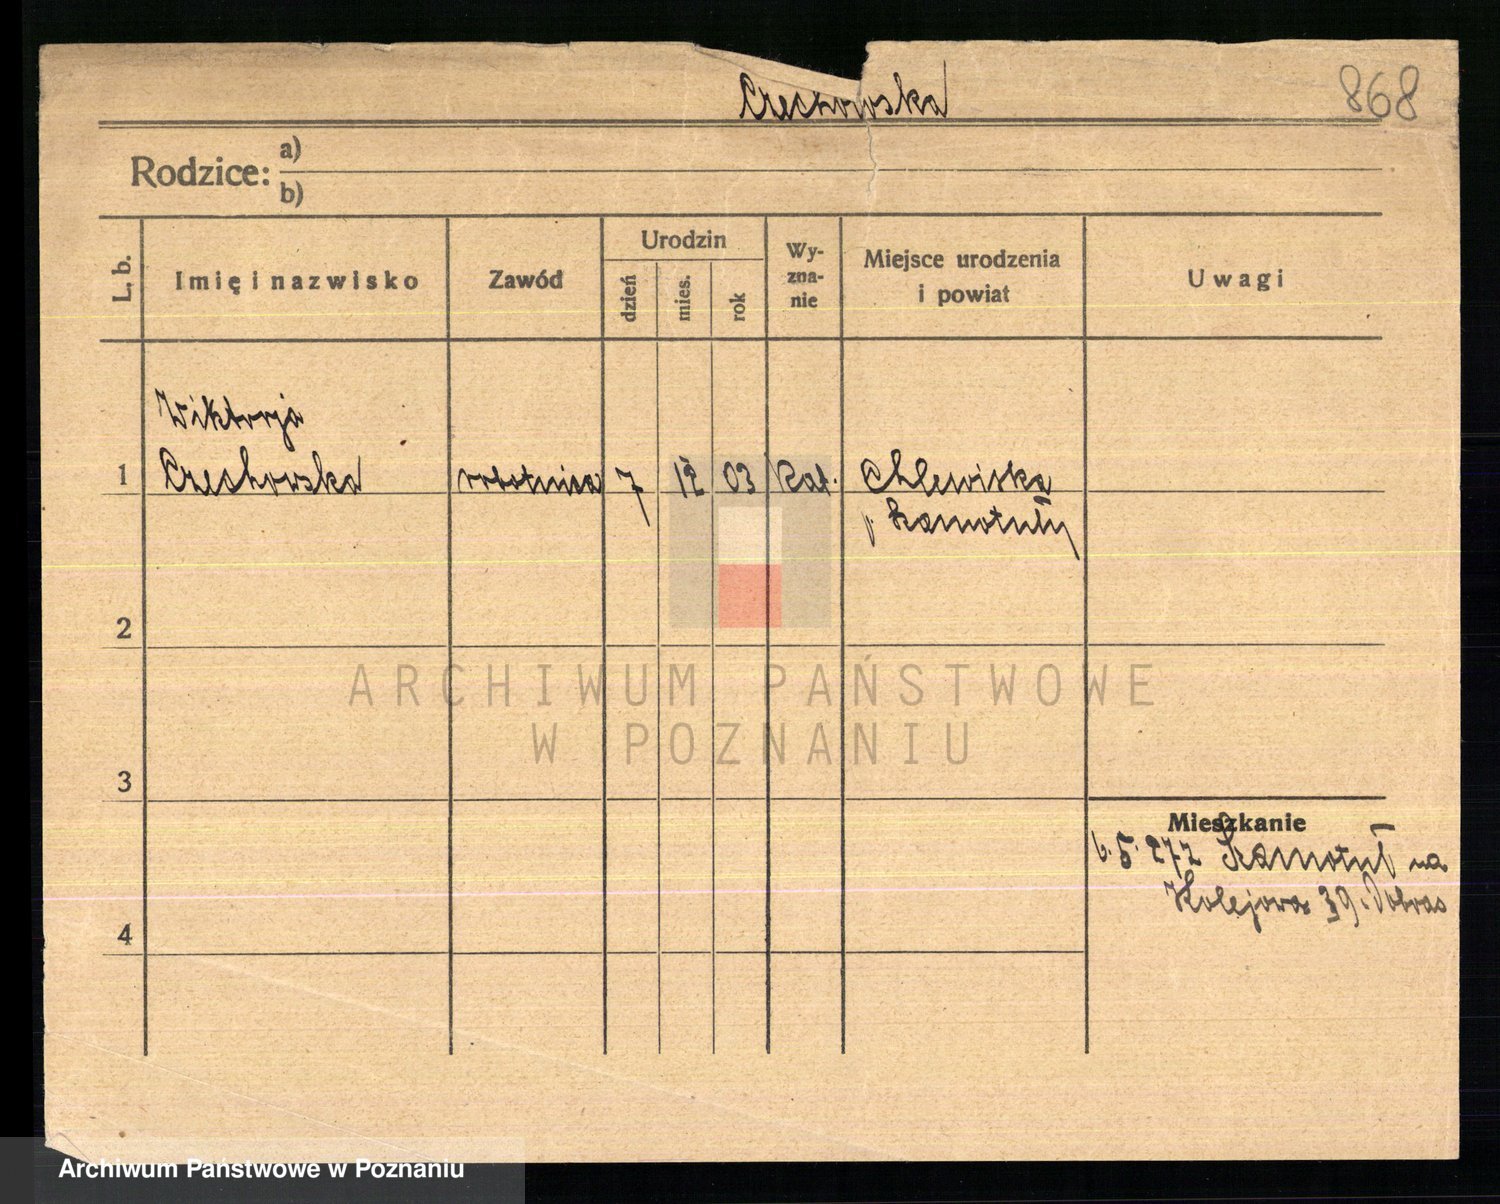 Czechowska
868
Rodzice: a)
b)
L. b.
Imię i nazwisko
Zawód
Urodzin
dzień
mies.
rok
Wy-
zna-
nie
Miejsce urodzenia
i powiat
Uwagi
Wiktorja
1 Czechowska robotnica 7 12 03 Kat. Chlewiska
p. Szamotuły
2
ARCHIWUM PAŃSTWOWE
W POZNANIU
3
Mieszkanie
6. 5. 272 Szamotuł na
Kolejowa 39.
4
Archiwum Państwowe w Poznaniu